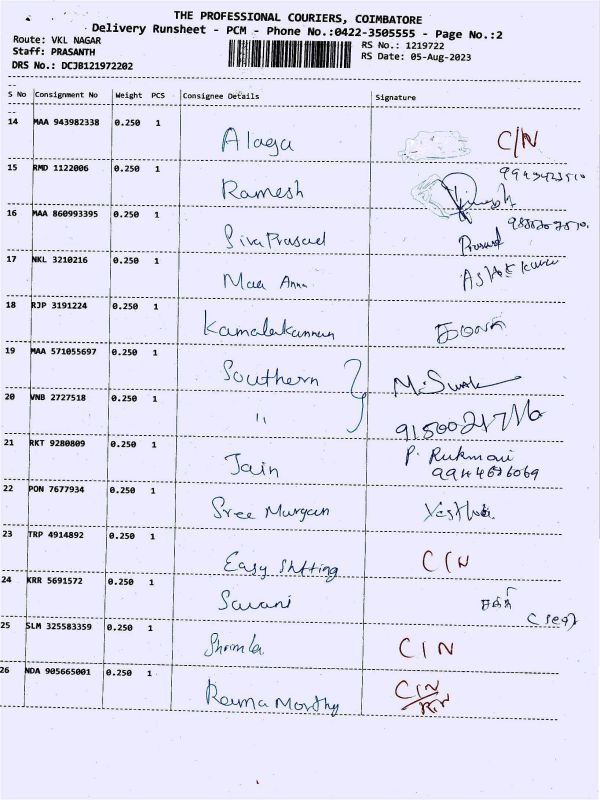 THE PROFESSIONAL COURIERS, COIMBATORE
Delivery Runsheet - PCM - Phone No.:0422-3505555 - Page No.:2
Route: VKL NAGAR
Staff: PRASANTH
DRS No.: DCJB121972202
RS No.: 1219722
RS Date: 05-Aug-2023
S No Consignment No Weight PCS Consignee Details Signature
14 MAA 943982338 0.250 1 Alaga C/N
15 RMD 1122006 0.250 1 Ramesh
16 MAA 860993395 0.250 1 Siva Prasad Prasad
17 NKL 3210216 0.250 1 Maa Anna Ashok kumar
18 RJP 3191224 0.250 1 Kamalakannan
19 MAA 571055697 0.250 1 Southern
20 VNB 2727518 0.250 1 "
21 RKT 9280809 0.250 1 Jain P. Rukmani
22 PON 7677934 0.250 1 Sree Murgan
23 TRP 4914892 0.250 1 Easy Shifting C/N
24 KRR 5691572 0.250 1 Savani
25 SLM 325583359 0.250 1 C/N
26 NDA 905665001 0.250 1 Rama Morthy C/N